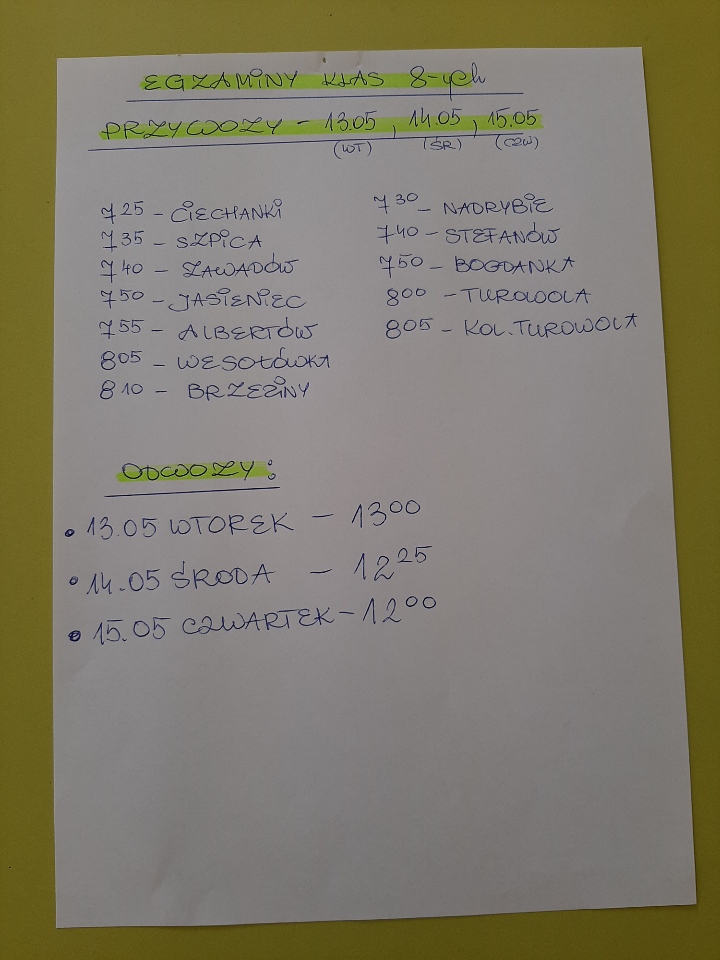 EGZAMINY KLAS 8-ych
PRZYWOZY - 13.05, 14.05, 15.05
(WT) (ŚR) (CZW)
7 25 - CIECHANKI
7 35 - SZPICA
7 40 - ZAWADÓW
7 50 - JASIENIEC
7 55 - ALBERTÓW
8 05 - WESOŁÓWKA
8 10 - BRZEZINY
7 30 - NADRYBIE
7 40 - STEFANÓW
7 50 - BOGDANKA
8 00 - TUROWOLA
8 05 - KOL. TUROWOLA
ODWOZY:
• 13.05 WTOREK - 13 00
• 14.05 ŚRODA - 12 25
• 15.05 CZWARTEK - 12 00